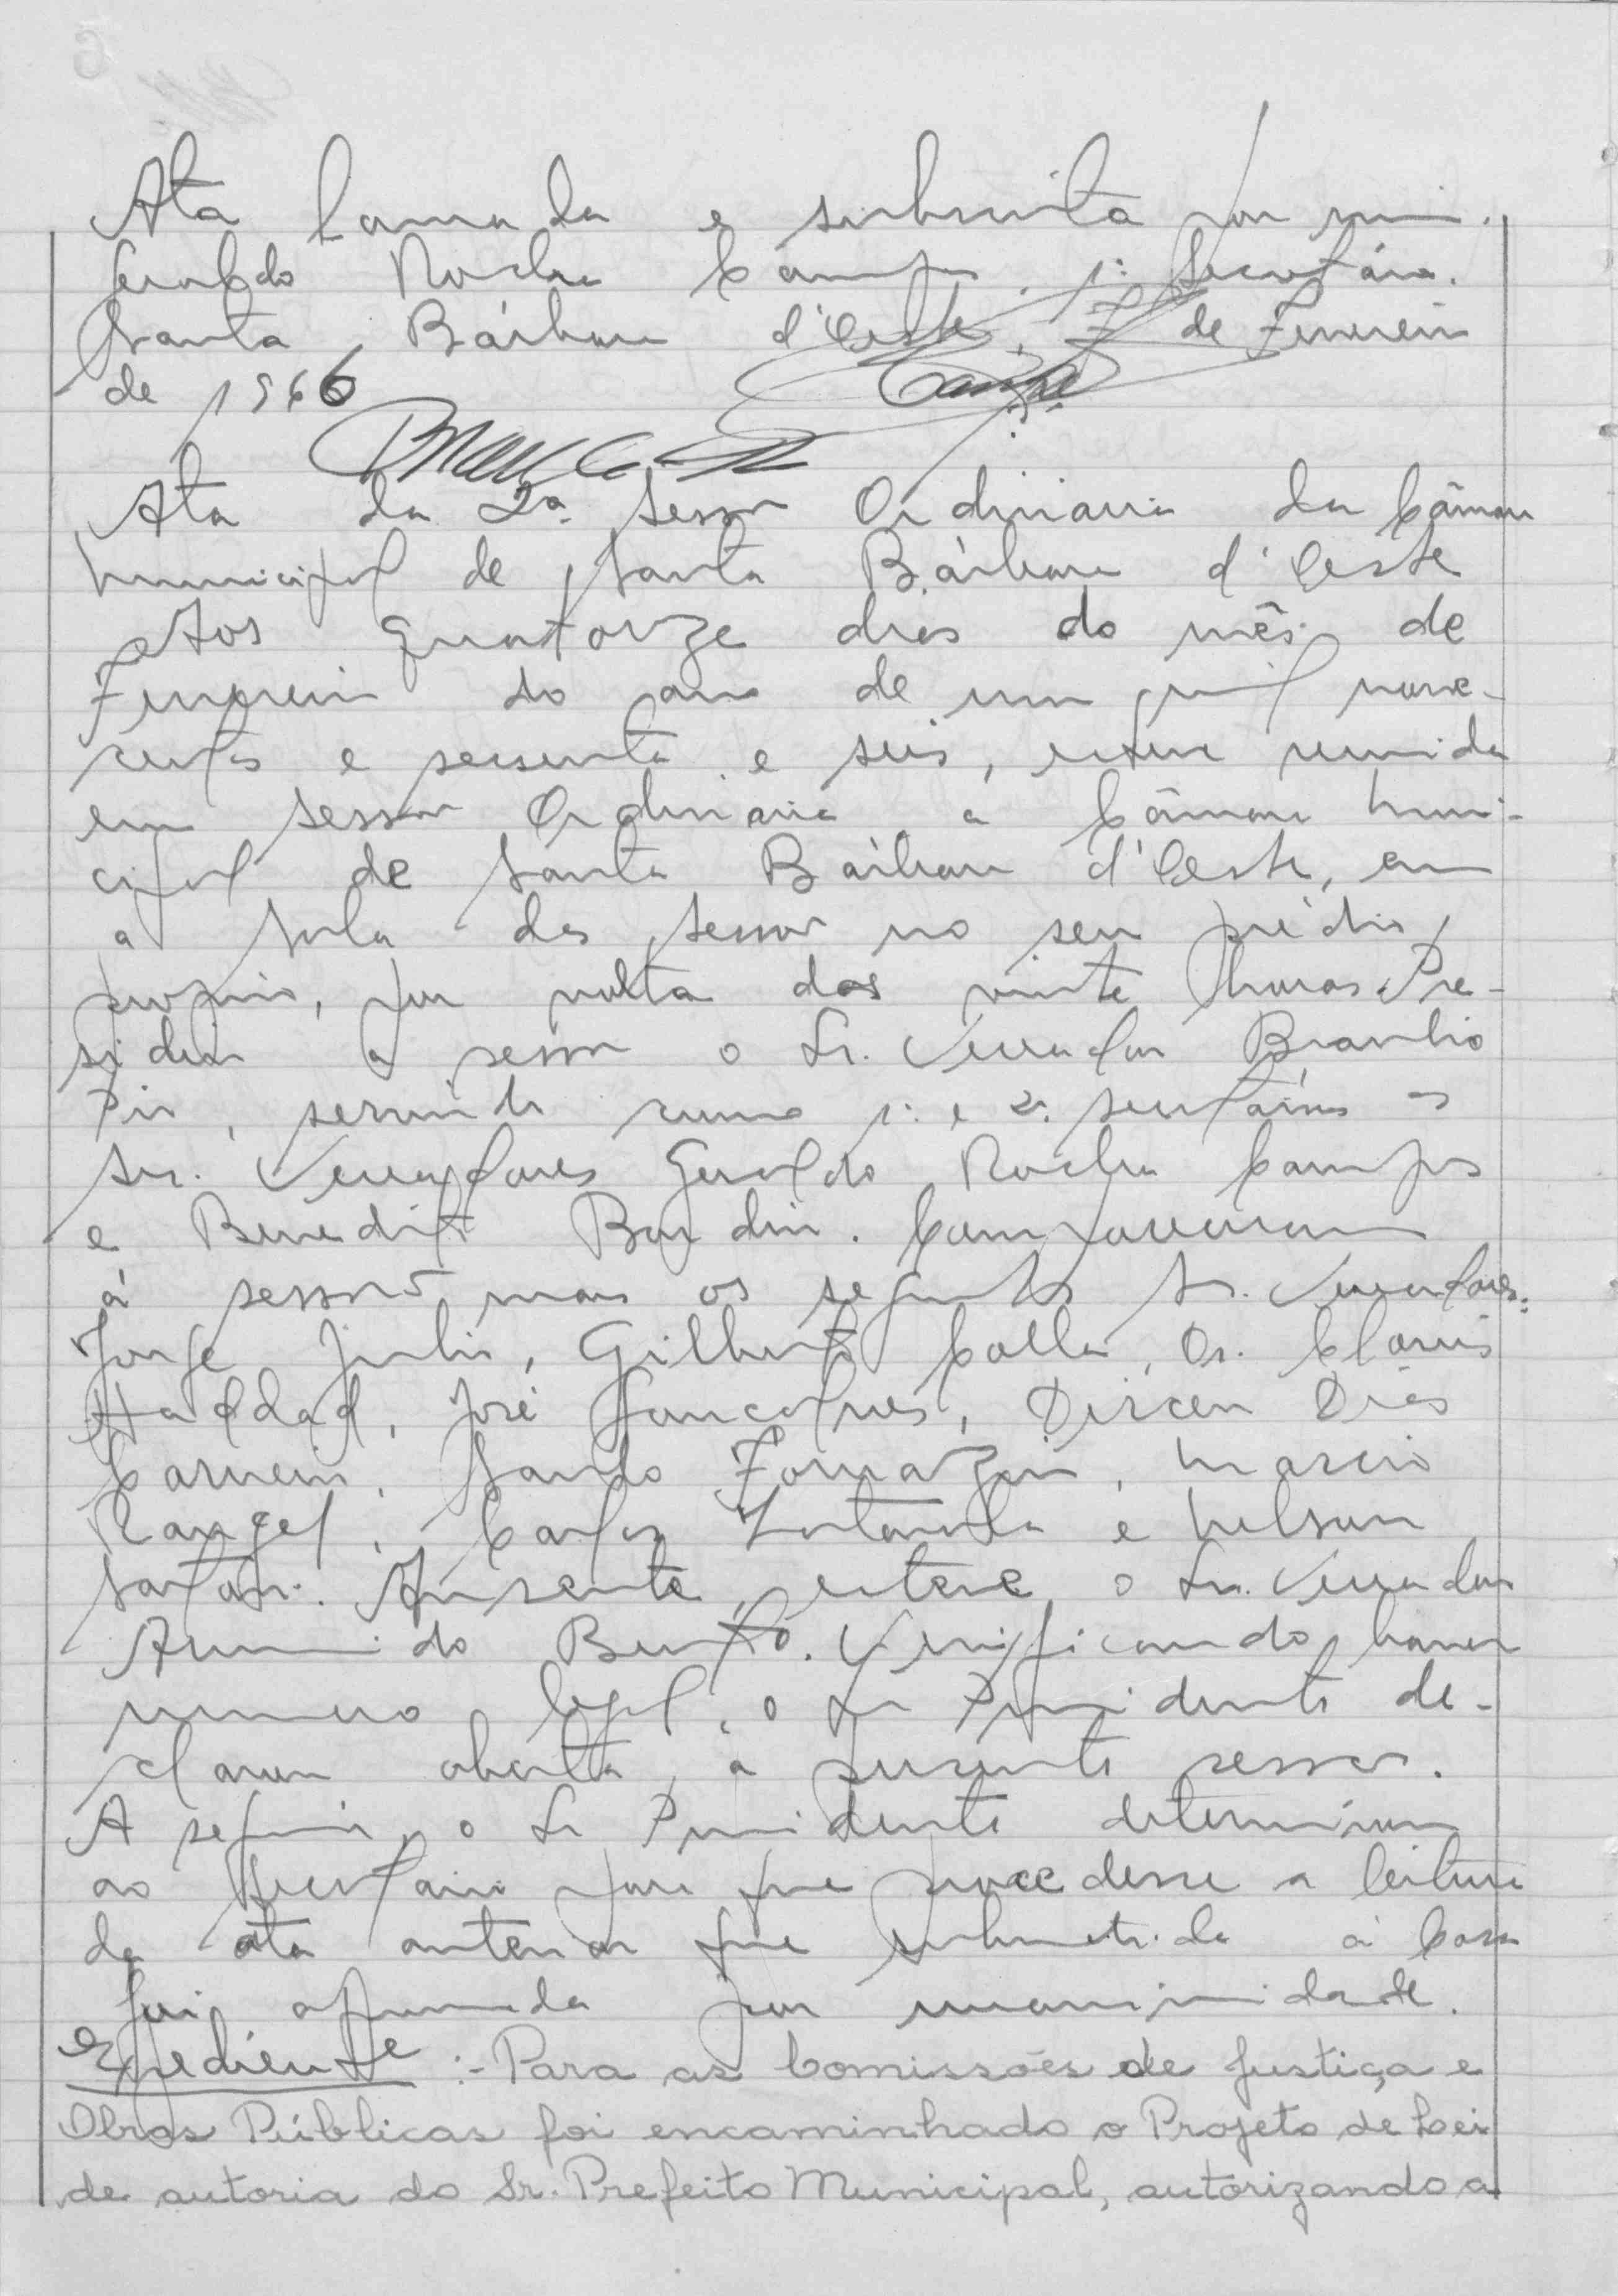 Ata lavrada e subscrita por mim.
Geraldo Rocha Campos, 1º Secretário.
Santa Bárbara d'Oeste, 7 de Fevereiro
de 1966
Ata da 2ª Sessão Ordinaria da Câmara
Municipal de Santa Bárbara d'Oeste
Aos quatorze dias do mês de
Fevereiro do ano de um mil nove-
centos e sessenta e seis, esteve reunida
em sessão Ordinaria a Câmara Muni-
cipal de Santa Bárbara d'Oeste, em
a sala das sessão no seu prédio
proprio, por volta das vinte horas. Pre-
sidiu a sessão o Sr. Vereador Braulio
Pio, servindo como 1º e 2º secretários os
Srs. Vereadores Geraldo Rocha Campos
e Benedito Bordin. Compareceram
à sessão mais os seguintes Srs. Vereadores:
Jorge Julio, Gilberto Calla, Dr. Clovis
Haddad, José Goncalves, Dirceu Dias
Carneiro, Santo Fornazin, Marcio
Rangel, Carlos e Nelson
Ausente esteve o Sr. Vereador
Armindo Bento. Verificando haver
numero legal, o Sr Presidente de-
clarou aberta a presente sessão.
A seguir, o Sr Presidente determinou
ao Secretario para que procedesse a leitura
da ata anterior que submetida à Casa
foi aprovada por unanimidade.
Expediente :- Para as Comissões de Justiça e
Obras Públicas foi encaminhado o Projeto de Lei
de autoria do Sr. Prefeito Municipal, autorizando a